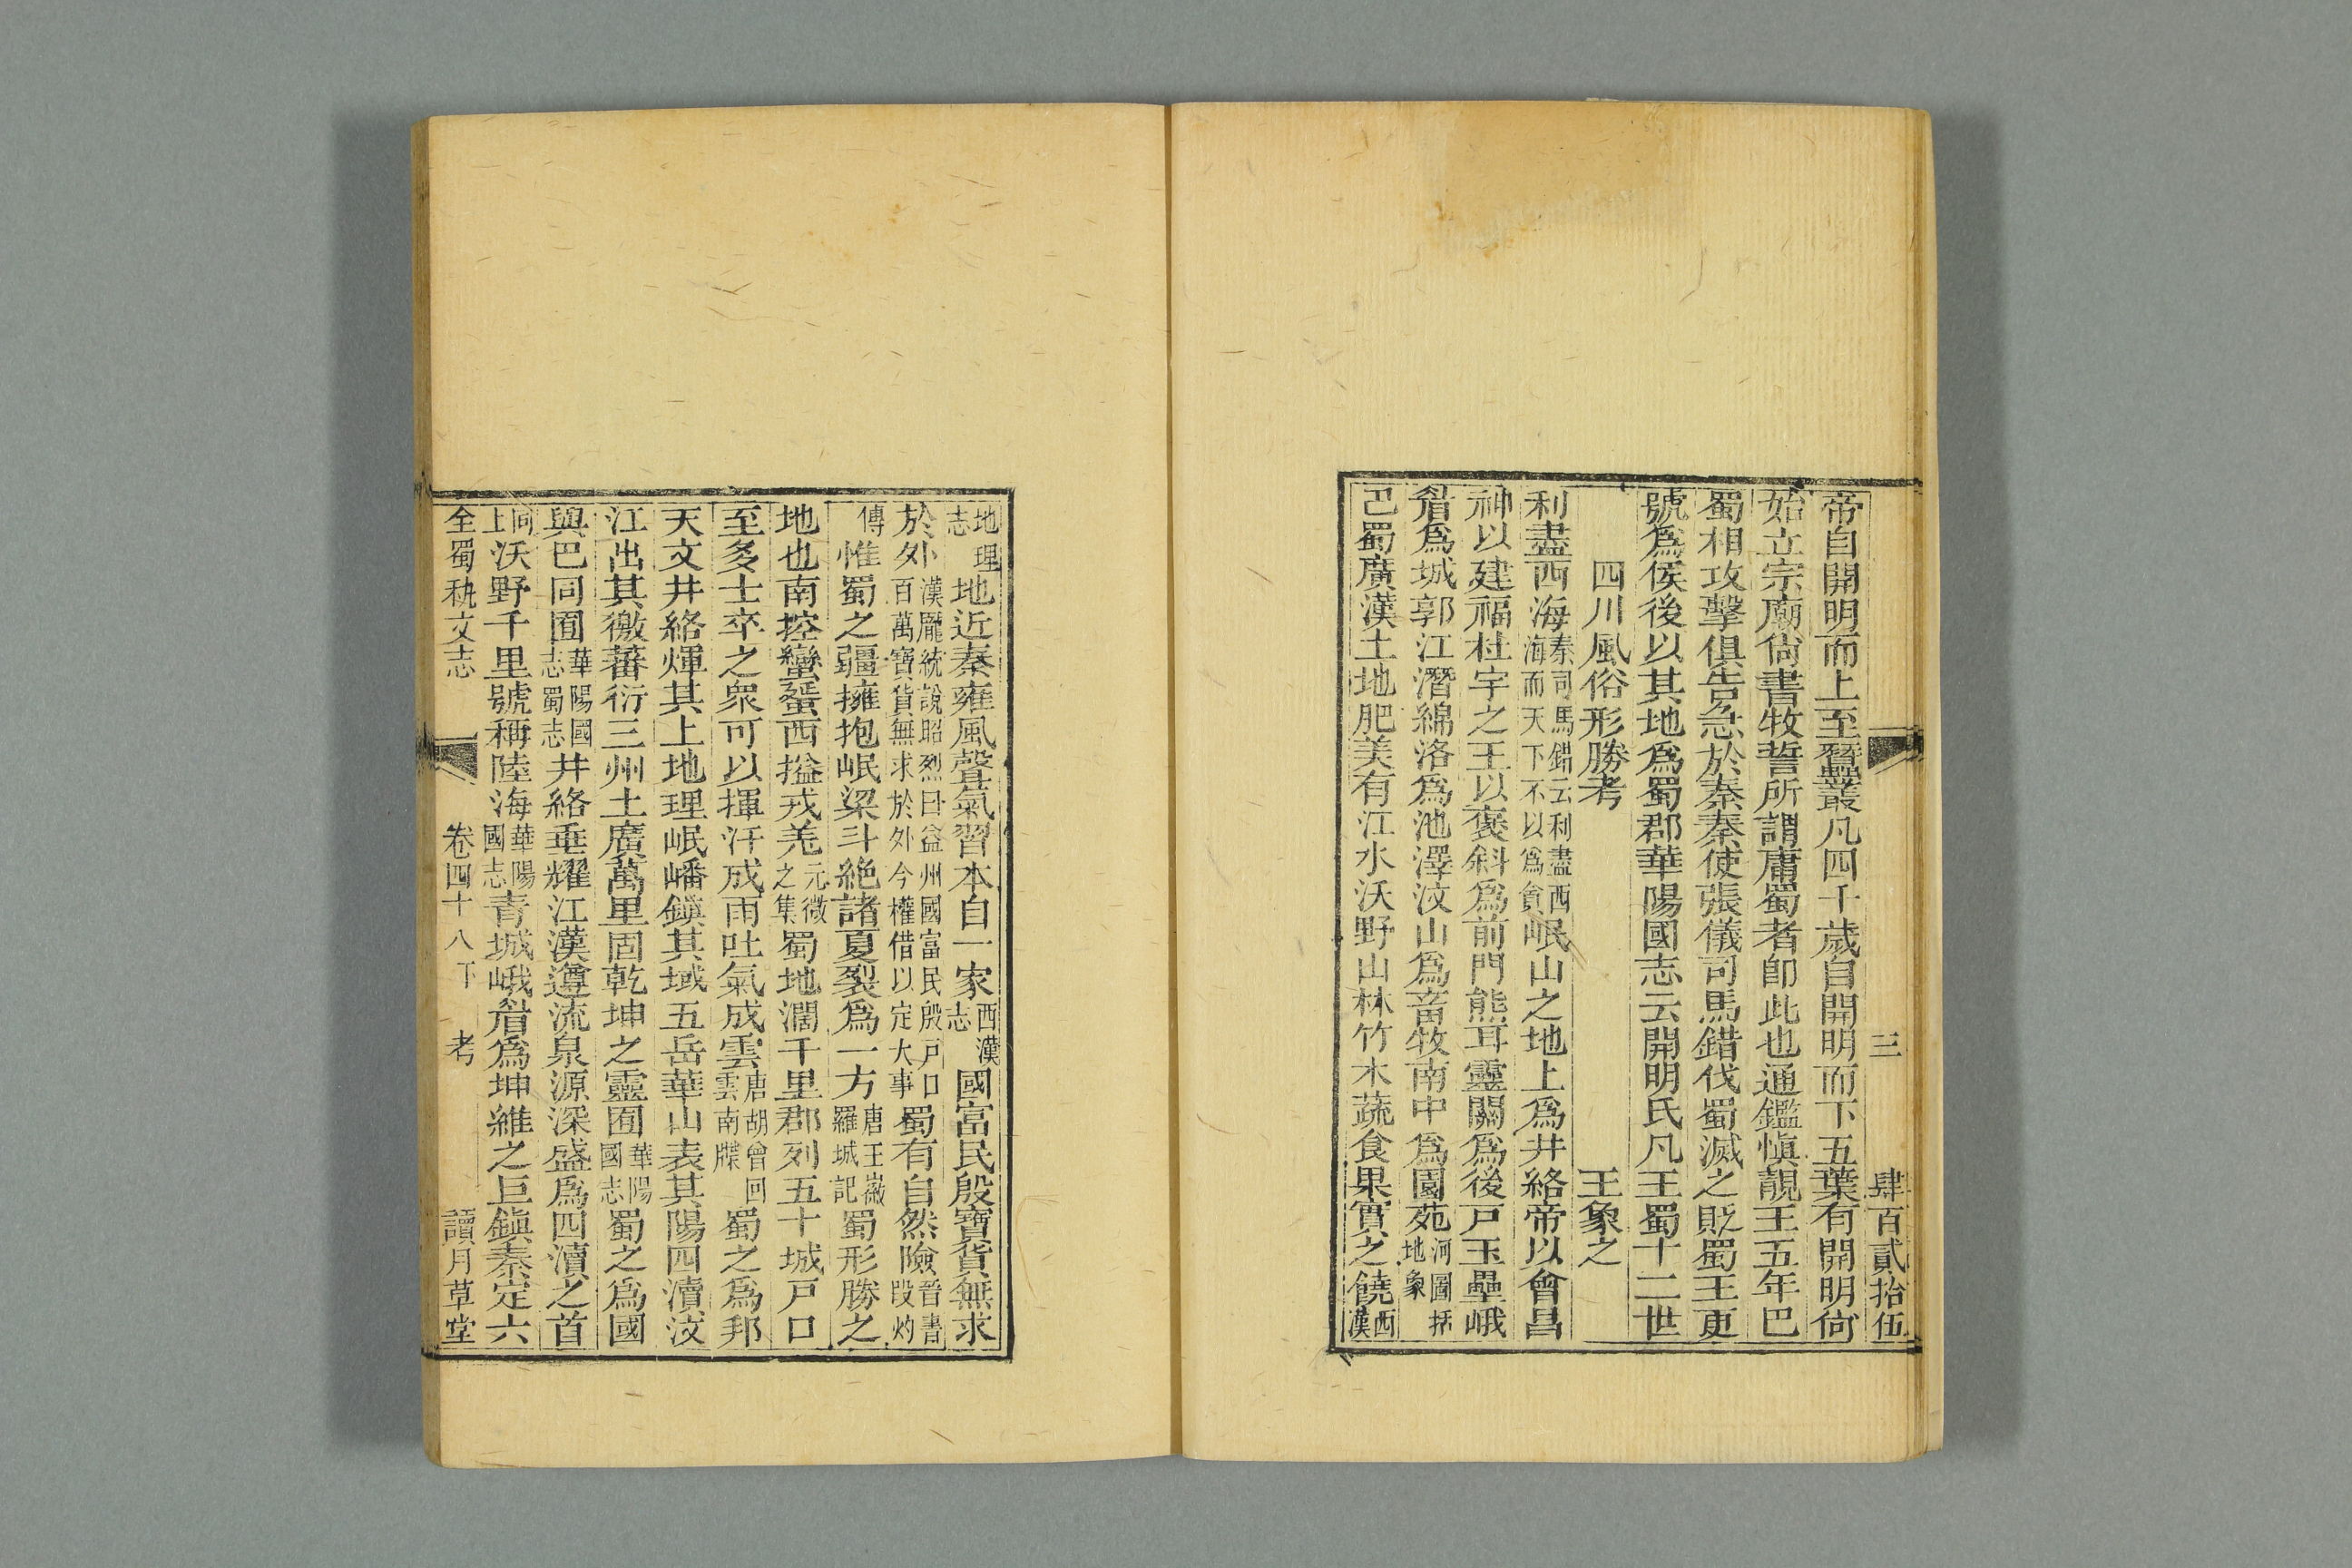 三　肆百貳拾伍
帝自開明而上至蠶叢凡四千歲自開明而下五葉有開明尙
始立宗廟尙書牧誓所謂庸蜀者卽此也通鑑愼靚王五年巴
蜀相攻擊俱告急於秦秦使張儀司馬錯伐蜀滅之貶蜀王更
號爲侯後以其地爲蜀郡華陽國志云開明氏凡王蜀十二世
四川風俗形勝考　王象之
利盡西海秦司馬錯云利盡西海而天下不以爲貪岷山之地上爲井絡帝以會昌
神以建福杜宇之王以褒斜爲前門熊耳靈關爲後戸玉壘峨
眉爲城郭江潛綿洛爲池澤汶山爲畜牧南中爲園苑河圖括地象
巴蜀廣漢土地肥美有江水沃野山林竹木蔬食果實之饒西漢
地理志地近秦雍風聲氣習本自一家西漢志國富民殷寶貨無求
於外漢龎統說昭烈曰益州國富民殷戸口百萬寶貨無求於外今權借以定大事蜀有自然險晉書段灼
傳惟蜀之疆擁抱岷梁斗絶諸夏裂爲一方唐王徽羅城記蜀形勝之
地也南控蠻蜑西搤戎羌元微之集蜀地濶千里郡列五十城戸口
至多士卒之衆可以揮汗成雨吐氣成雲唐胡曾回雲南牒蜀之爲邦
天文井絡煇其上地理岷嶓鎮其域五岳華山表其陽四瀆汶
江出其徼蕃衍三州土廣萬里固乾坤之靈囿華陽國志蜀之爲國
與巴同囿華陽國志蜀志井絡垂耀江漢遵流泉源深盛爲四瀆之首
同上沃野千里號稱陸海華陽國志青城峨眉爲坤維之巨鎮秦定六
全蜀秇文志　卷四十八下　考　讀月草堂